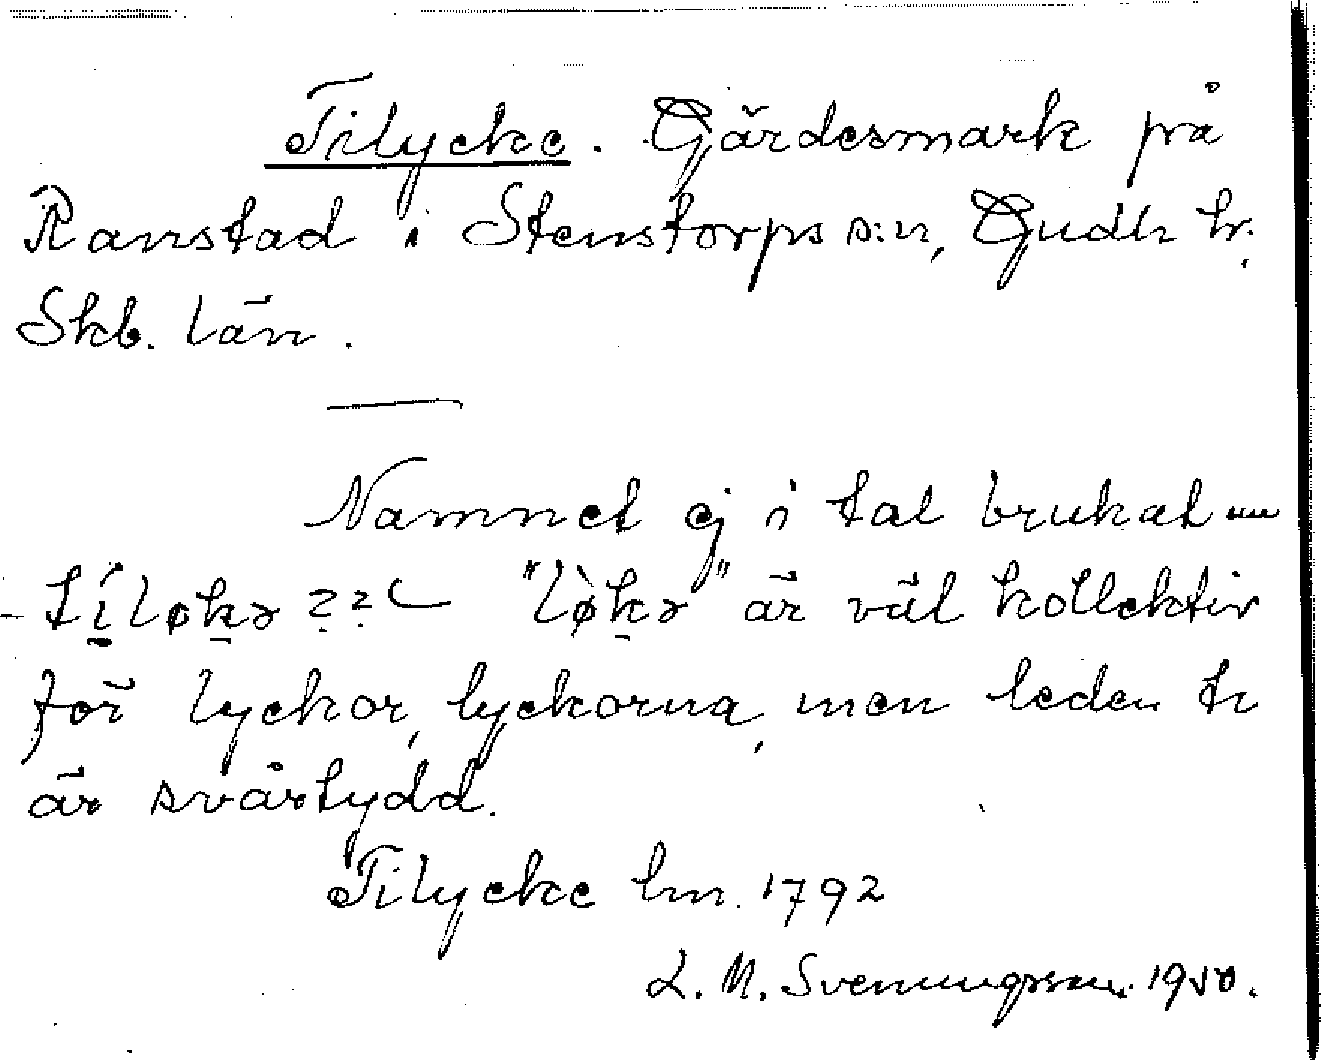 Tilycke. Gärdesmark på
Ranstad i Stenstorps s:n, Gudh. hr.
Skb. län.
Namnet ej i tal brukat
tiløkə ??  "løkə" är väl kollektiv
för lyckor, lyckorna, men leden ti
är svårtydd.
Tilycke lm. 1792
L. M. Svenungsson 1950.